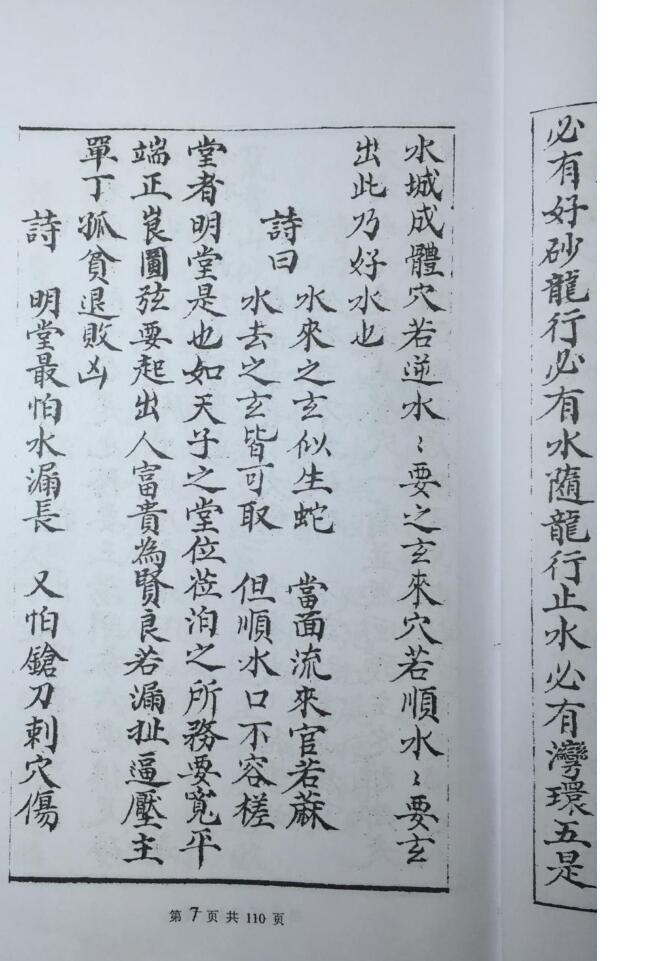 必有好砂龍行必有水隨龍行止水必有灣環五是
水城成體穴若逆水〻要之玄來穴若順水〻要玄
出此乃好水也
詩曰 水來之玄似生蛇 當面流來官若蔴
水去之玄皆可取 但順水口不容槎
堂者明堂是也如天子之堂位莅泊之所務要寬平
端正峎圓弦要起出人富貴為賢良若漏扯逼壓主
單丁孤貧退敗凶
詩 明堂最怕水漏長 又怕鎗刀刺穴傷
第 7 页 共 110 页